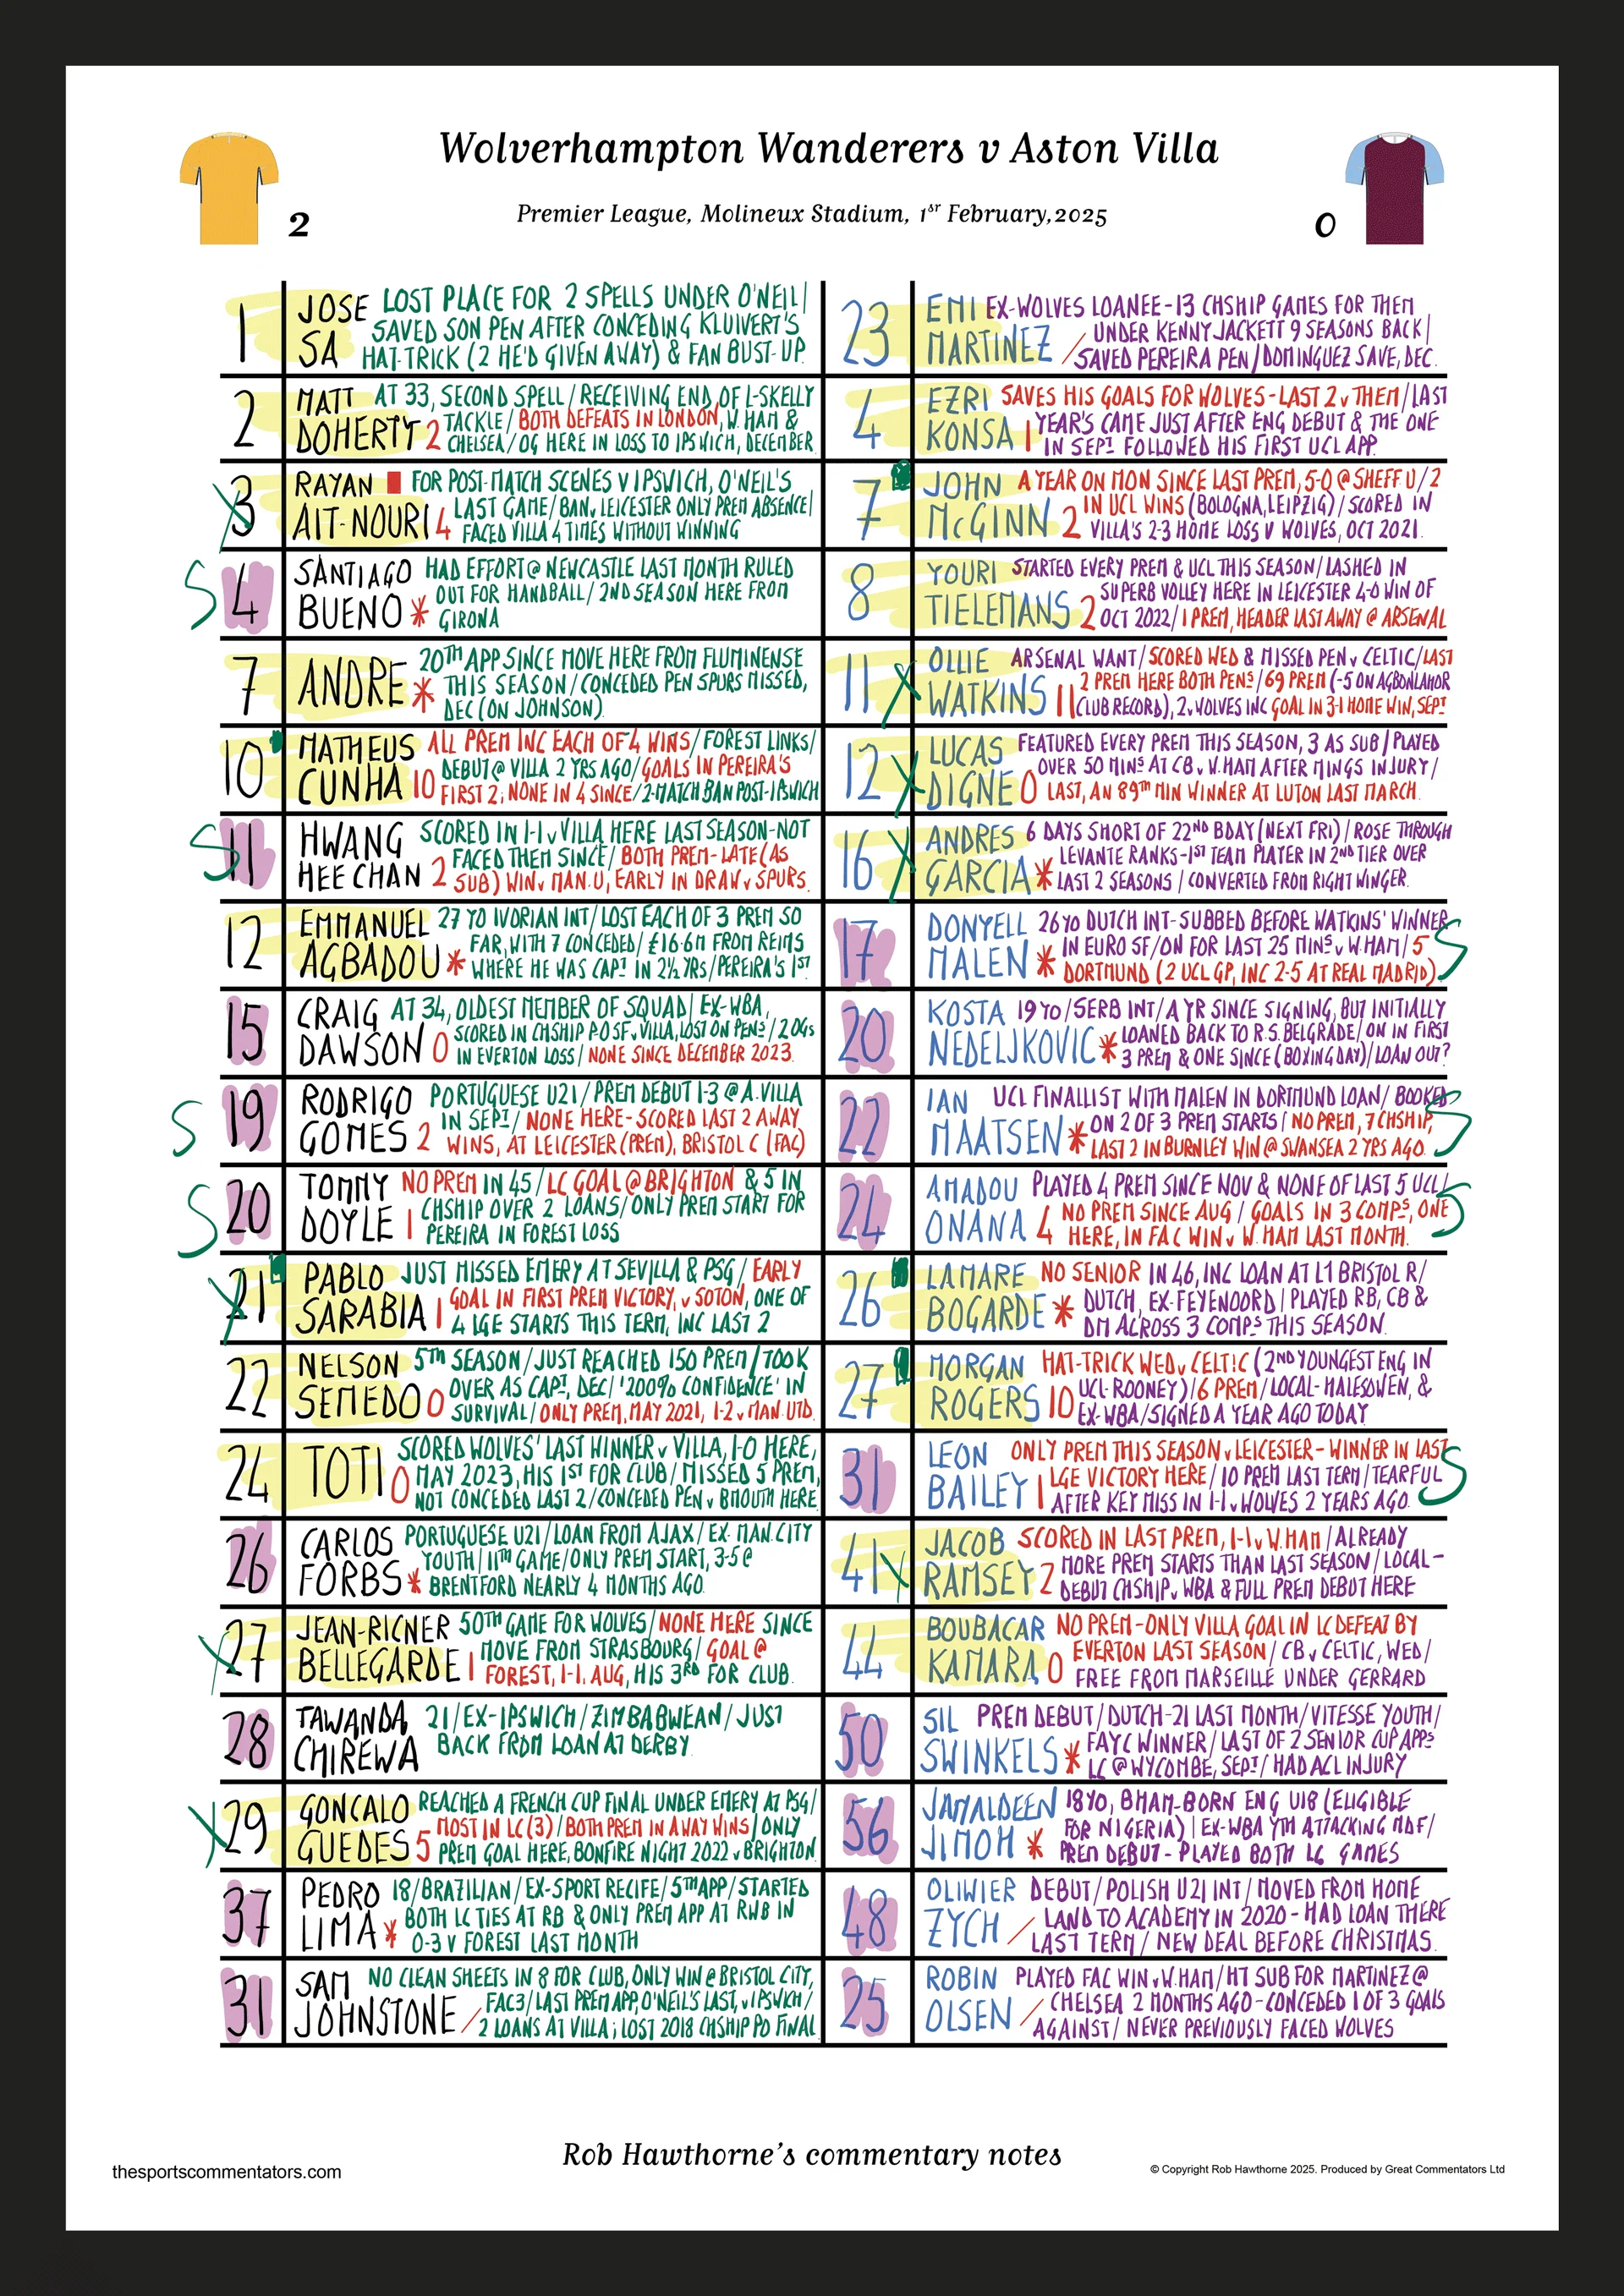 Wolverhampton Wanderers v Aston Villa
Premier League, Molineux Stadium, 1ST February, 2025
2
0
1 JOSE SA
LOST PLACE FOR 2 SPELLS UNDER O'NEIL /
SAVED SON PEN AFTER CONCEDING KLUIVERT'S
HAT-TRICK (2 HE'D GIVEN AWAY) & FAN BUST-UP.
2 MATT DOHERTY 2
AT 33, SECOND SPELL / RECEIVING END OF L-SKELLY
TACKLE / BOTH DEFEATS IN LONDON, W. HAM &
CHELSEA / OG HERE IN LOSS TO IPSWICH, DECEMBER
X 3 RAYAN AIT-NOURI 4
FOR POST-MATCH SCENES V IPSWICH, O'NEIL'S
LAST GAME / BAN v LEICESTER ONLY PREM ABSENCE /
FACED VILLA 4 TIMES WITHOUT WINNING
S 4 SANTIAGO BUENO *
HAD EFFORT @ NEWCASTLE LAST MONTH RULED
OUT FOR HANDBALL / 2ND SEASON HERE FROM
GIRONA
7 ANDRE *
20TH APP SINCE MOVE HERE FROM FLUMINENSE
THIS SEASON / CONCEDED PEN SPURS MISSED,
DEC (ON JOHNSON)
10 MATHEUS CUNHA 10
ALL PREM INC EACH OF 4 WINS / FOREST LINKS /
DEBUT @ VILLA 2 YRS AGO / GOALS IN PEREIRA'S
FIRST 2; NONE IN 4 SINCE / 2-MATCH BAN POST-IPSWICH
S 11 HWANG HEE CHAN 2
SCORED IN 1-1 v VILLA HERE LAST SEASON-NOT
FACED THEM SINCE / BOTH PREM-LATE (AS
SUB) WIN v MAN.U, EARLY IN DRAW v SPURS.
12 EMMANUEL AGBADOU *
27 YO IVORIAN INT / LOST EACH OF 3 PREM SO
FAR, WITH 7 CONCEDED / £16.6M FROM REIMS
WHERE HE WAS CAPT IN 2½ YRS / PEREIRA'S 1ST
15 CRAIG DAWSON 0
AT 34, OLDEST MEMBER OF SQUAD / EX-WBA,
SCORED IN CHSHIP PO SF v VILLA, LOST ON PENS / 2 OGs
IN EVERTON LOSS / NONE SINCE DECEMBER 2023.
S 19 RODRIGO GOMES 2
PORTUGUESE U21 / PREM DEBUT 1-3 @ A.VILLA
IN SEPT / NONE HERE-SCORED LAST 2 AWAY
WINS, AT LEICESTER (PREM), BRISTOL C (FAC)
S 20 TOMMY DOYLE 1
NO PREM IN 45 / LC GOAL @ BRIGHTON & 5 IN
CHSHIP OVER 2 LOANS / ONLY PREM START FOR
PEREIRA IN FOREST LOSS
X 21 PABLO SARABIA 1
JUST MISSED EMERY AT SEVILLA & PSG / EARLY
GOAL IN FIRST PREM VICTORY, v SOTON, ONE OF
4 LGE STARTS THIS TERM, INC LAST 2
22 NELSON SEMEDO 0
5TH SEASON / JUST REACHED 150 PREM / TOOK
OVER AS CAPT, DEC / '200% CONFIDENCE' IN
SURVIVAL / ONLY PREM, MAY 2021, 1-2 v MAN. UTD.
24 TOTI 0
SCORED WOLVES' LAST WINNER v VILLA, 1-0 HERE,
MAY 2023, HIS 1ST FOR CLUB / MISSED 5 PREM,
NOT CONCEDED LAST 2 / CONCEDED PEN v BMOUTH HERE
26 CARLOS FORBS *
PORTUGUESE U21 / LOAN FROM AJAX / EX-MAN.CITY
YOUTH / 11TH GAME / ONLY PREM START, 3-5 @
BRENTFORD NEARLY 4 MONTHS AGO.
X 27 JEAN-RICNER BELLEGARDE 1
50TH GAME FOR WOLVES / NONE HERE SINCE
MOVE FROM STRASBOURG / GOAL @
FOREST, 1-1, AUG, HIS 3RD FOR CLUB.
28 TAWANDA CHIREWA
21 / EX-IPSWICH / ZIMBABWEAN / JUST
BACK FROM LOAN AT DERBY
X 29 GONCALO GUEDES 5
REACHED A FRENCH CUP FINAL UNDER EMERY AT PSG /
MOST IN LC (3) / BOTH PREM IN AWAY WINS / ONLY
PREM GOAL HERE, BONFIRE NIGHT 2022 v BRIGHTON
37 PEDRO LIMA *
18 / BRAZILIAN / EX-SPORT RECIFE / 5TH APP / STARTED
BOTH LC TIES AT RB & ONLY PREM APP AT RWB IN
0-3 V FOREST LAST MONTH
31 SAM JOHNSTONE /
NO CLEAN SHEETS IN 8 FOR CLUB, ONLY WIN @ BRISTOL CITY,
FAC3 / LAST PREM APP, O'NEIL'S LAST, v IPSWICH /
2 LOANS AT VILLA; LOST 2018 CHSHIP PO FINAL
23 EMI MARTINEZ /
EX-WOLVES LOANEE-13 CHSHIP GAMES FOR THEM
UNDER KENNY JACKETT 9 SEASONS BACK /
SAVED PEREIRA PEN / DOMINGUEZ SAVE, DEC.
4 EZRI KONSA 1
SAVES HIS GOALS FOR WOLVES-LAST 2 v THEM / LAST
YEAR'S CAME JUST AFTER ENG DEBUT & THE ONE
IN SEPT FOLLOWED HIS FIRST UCL APP.
7 JOHN McGINN 2
A YEAR ON MON SINCE LAST PREM, 5-0 @ SHEFF U / 2
IN UCL WINS (BOLOGNA, LEIPZIG) / SCORED IN
VILLA'S 2-3 HOME LOSS V WOLVES, OCT 2021.
8 YOURI TIELEMANS 2
STARTED EVERY PREM & UCL THIS SEASON / LASHED IN
SUPERB VOLLEY HERE IN LEICESTER 4-0 WIN OF
OCT 2022 / 1 PREM, HEADER LAST AWAY @ ARSENAL
11 X OLLIE WATKINS 11
ARSENAL WANT / SCORED WED & MISSED PEN v CELTIC / LAST
2 PREM HERE BOTH PENS / 69 PREM (-5 ON AGBONLAHOR
(CLUB RECORD), 2 v WOLVES INC GOAL IN 3-1 HOME WIN, SEPT
12 X LUCAS DIGNE 0
FEATURED EVERY PREM THIS SEASON, 3 AS SUB / PLAYED
OVER 50 MINS AT CB v W.HAM AFTER MINGS INJURY /
LAST, AN 89TH MIN WINNER AT LUTON LAST MARCH.
16 X ANDRES GARCIA *
6 DAYS SHORT OF 22ND BDAY (NEXT FRI) / ROSE THROUGH
LEVANTE RANKS-1ST TEAM PLAYER IN 2ND TIER OVER
LAST 2 SEASONS / CONVERTED FROM RIGHT WINGER.
17 DONYELL MALEN * S
26 YO DUTCH INT-SUBBED BEFORE WATKINS' WINNER
IN EURO SF / ON FOR LAST 25 MINS v W.HAM / 5
DORTMUND (2 UCL GP, INC 2-5 AT REAL MADRID)
20 KOSTA NEDELJKOVIC *
19 YO / SERB INT / A YR SINCE SIGNING, BUT INITIALLY
LOANED BACK TO R.S. BELGRADE / ON IN FIRST
3 PREM & ONE SINCE (BOXING DAY) / LOAN OUT?
22 IAN MAATSEN * S
UCL FINALLIST WITH MALEN IN DORTMUND LOAN / BOOKED
ON 2 OF 3 PREM STARTS / NO PREM, 7 CHSHIP,
LAST 2 IN BURNLEY WIN @ SWANSEA 2 YRS AGO.
24 AMADOU ONANA 4 S
PLAYED 4 PREM SINCE NOV & NONE OF LAST 5 UCL /
NO PREM SINCE AUG / GOALS IN 3 COMPS, ONE
HERE, IN FAC WIN v W.HAM LAST MONTH.
26 LAMARE BOGARDE *
NO SENIOR IN 46, INC LOAN AT L1 BRISTOL R /
DUTCH, EX-FEYENOORD / PLAYED RB, CB &
DM ACROSS 3 COMPS THIS SEASON.
27 MORGAN ROGERS 10
HAT-TRICK WED v CELTIC (2ND YOUNGEST ENG IN
UCL-ROONEY) / 6 PREM / LOCAL-HALESOWEN, &
EX-WBA / SIGNED A YEAR AGO TODAY
31 LEON BAILEY 1 S
ONLY PREM THIS SEASON v LEICESTER-WINNER IN LAST
LGE VICTORY HERE / 10 PREM LAST TERM / TEARFUL
AFTER KEY MISS IN 1-1 v WOLVES 2 YEARS AGO.
41 X JACOB RAMSEY 2
SCORED IN LAST PREM, 1-1 v W.HAM / ALREADY
MORE PREM STARTS THAN LAST SEASON / LOCAL-
DEBUT CHSHIP v WBA & FULL PREM DEBUT HERE
44 BOUBACAR KAMARA 0
NO PREM-ONLY VILLA GOAL IN LC DEFEAT BY
EVERTON LAST SEASON / CB v CELTIC, WED /
FREE FROM MARSEILLE UNDER GERRARD
50 SIL SWINKELS *
PREM DEBUT / DUTCH-21 LAST MONTH / VITESSE YOUTH /
FAYC WINNER / LAST OF 2 SENIOR CUP APPS
LC @ WYCOMBE, SEPT / HAD ACL INJURY
56 JAMALDEEN JIMOH *
18 YO, BHAM-BORN ENG U18 (ELIGIBLE
FOR NIGERIA) / EX-WBA YTH ATTACKING MDF /
PREM DEBUT - PLAYED BOTH LC GAMES
48 OLIWIER ZYCH /
DEBUT / POLISH U21 INT / MOVED FROM HOME
LAND TO ACADEMY IN 2020-HAD LOAN THERE
LAST TERM / NEW DEAL BEFORE CHRISTMAS.
25 ROBIN OLSEN /
PLAYED FAC WIN v W.HAM / HT SUB FOR MARTINEZ @
CHELSEA 2 MONTHS AGO-CONCEDED 1 OF 3 GOALS
AGAINST / NEVER PREVIOUSLY FACED WOLVES
Rob Hawthorne's commentary notes
thesportscommentators.com
© Copyright Rob Hawthorne 2025. Produced by Great Commentators Ltd